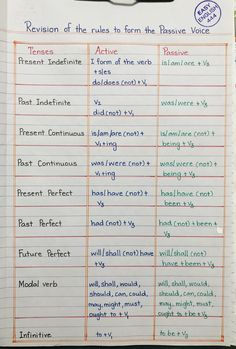 EASY
ENGLISH
254
Revision of the rules to form the Passive Voice
Tenses Active Passive
Present Indefinite I form of the verb is/am/are + V3
+s/es
do/does (not) + V1
Past Indefinite V2 was/were + V3
did (not) + V1
Present Continuous is/am/are (not) + is/am/are (not) +
V1+ing being + V3
Past Continuous was/were (not) + was/were (not) +
V1+ing being + V3
Present Perfect has/have (not) + has/have (not)
V3 been + V3
Past Perfect had (not) + V3 had (not) + been +
V3
Future Perfect will/shall (not) have will/shall (not)
+ V3 have + been + V3
Modal verb will, shall, would, will, shall, would,
should, can, could, should, can, could,
may, might, must, may, might, must,
ought to + V1 ought to + be + V3
Infinitive to + V1 to be + V3